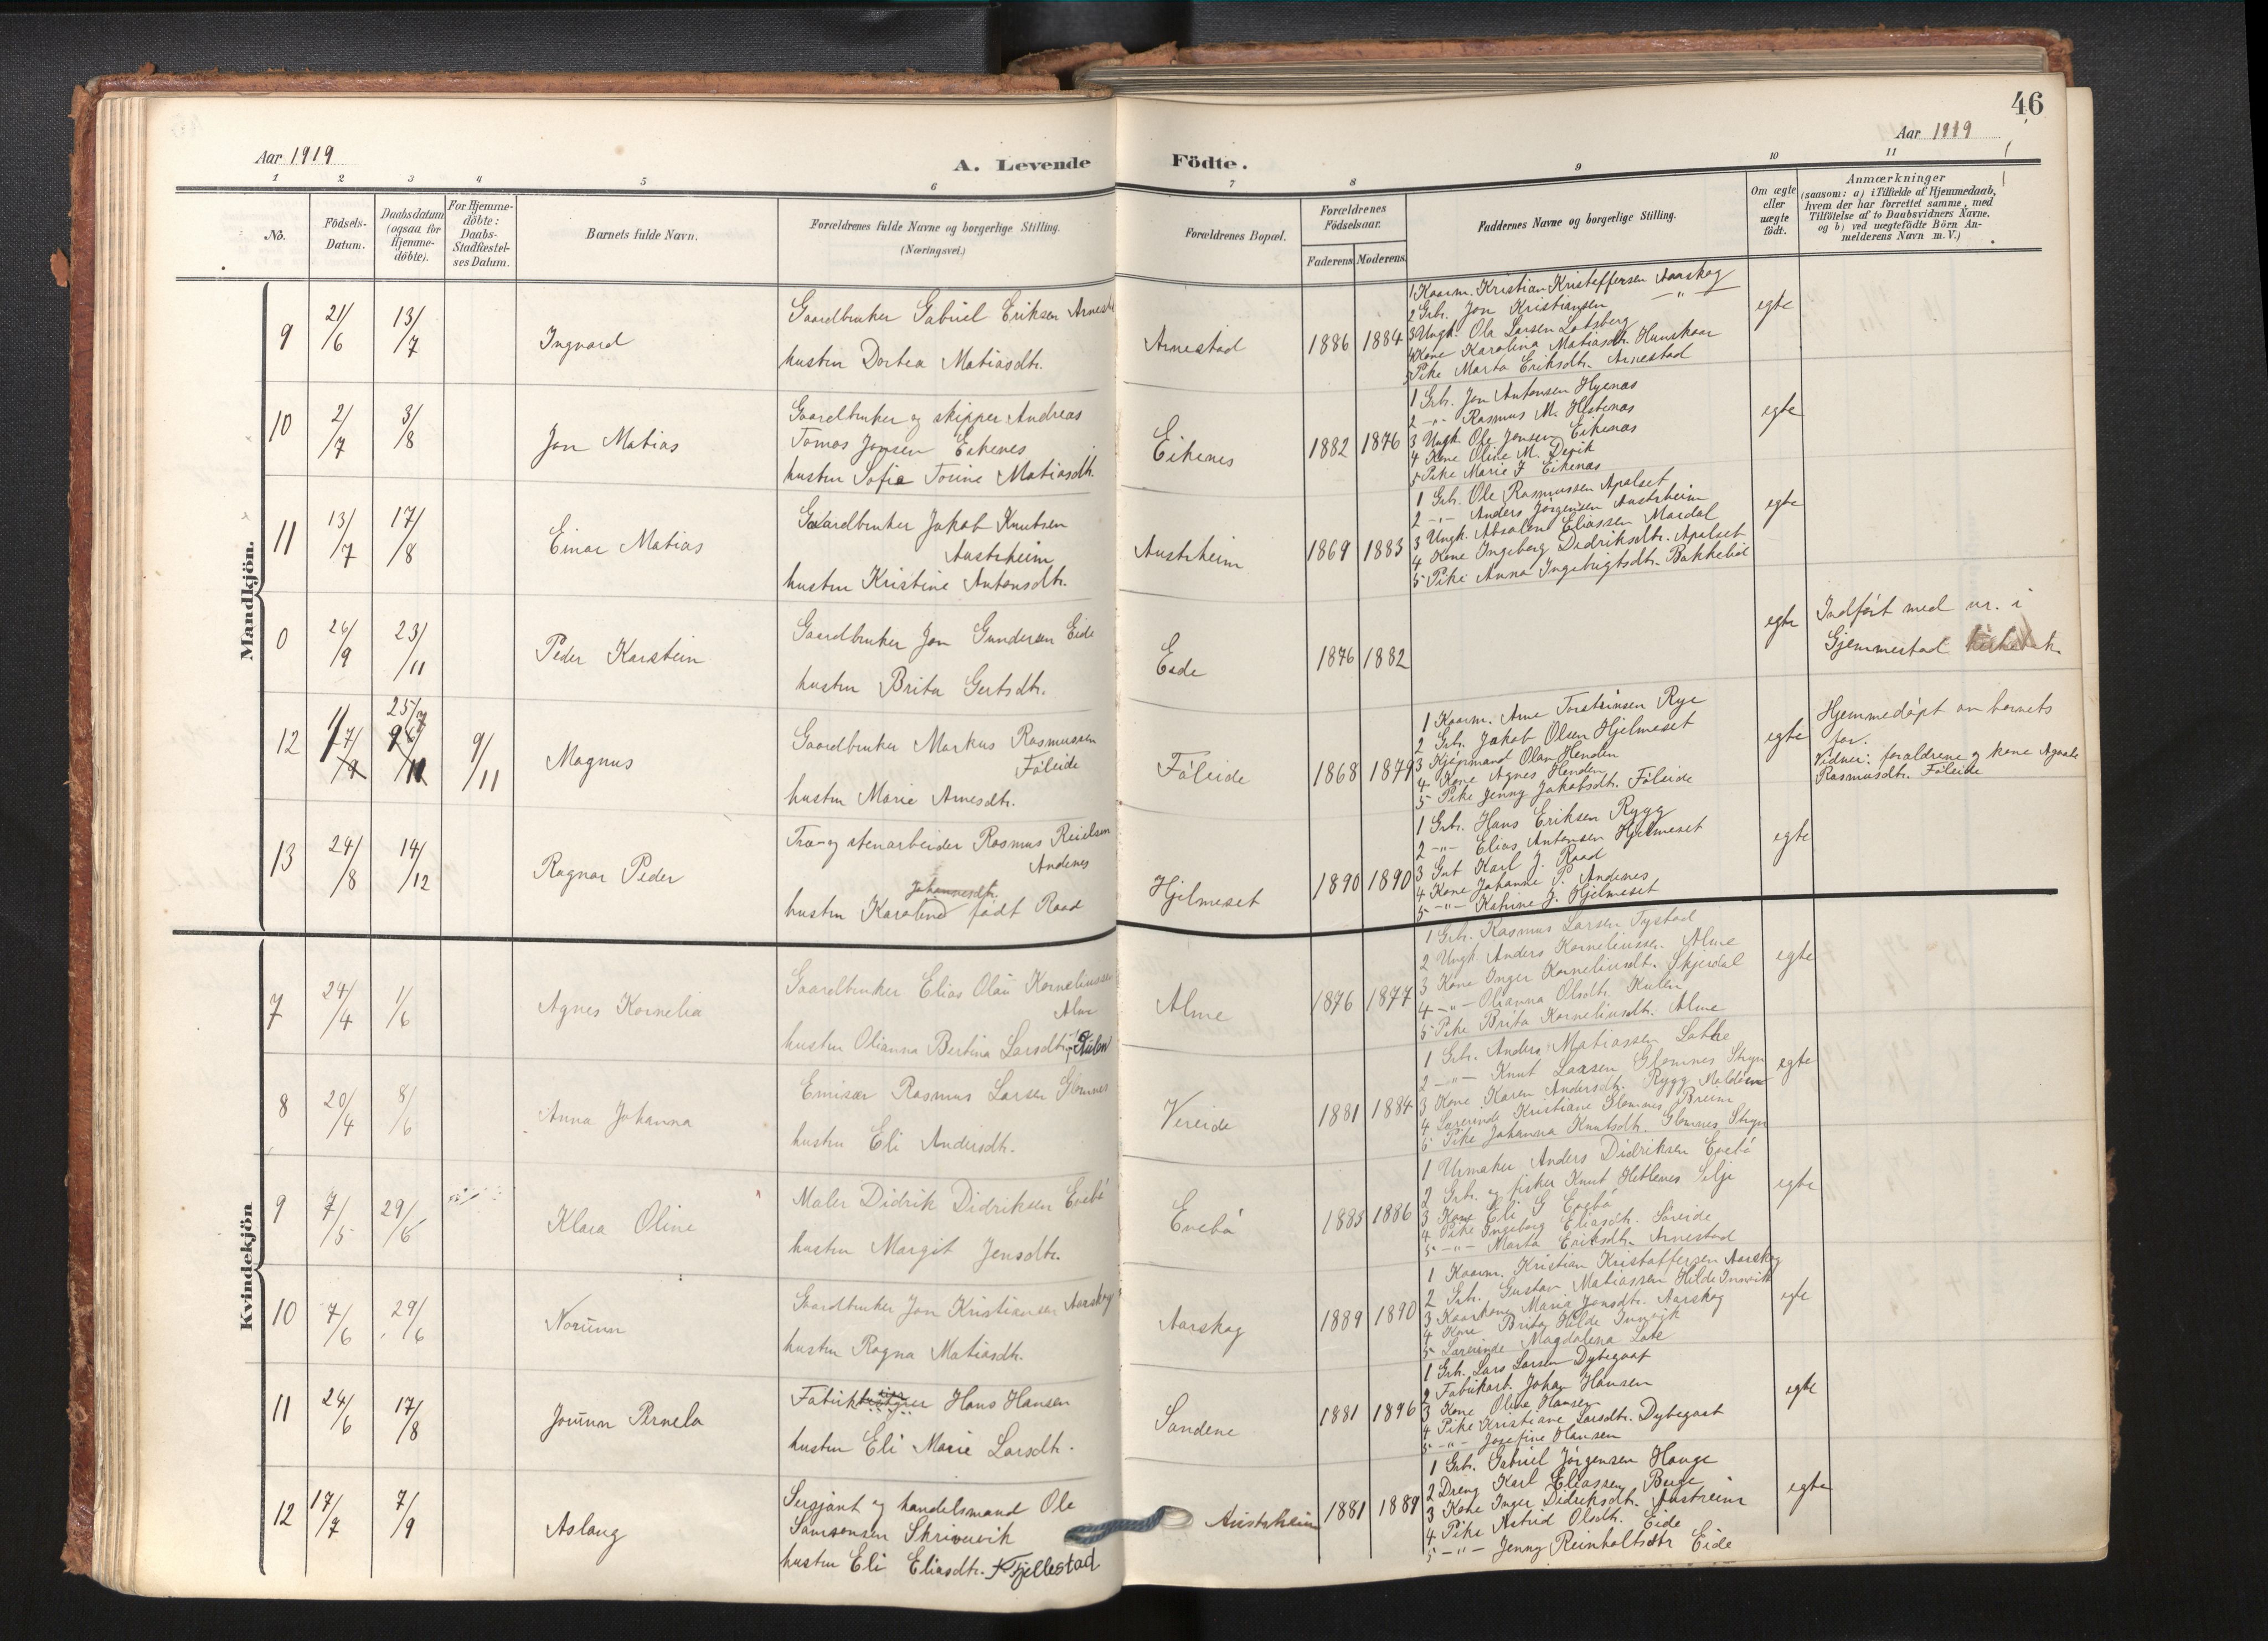 46
Aar 1919
Aar 1919
A. Levende
Födte.
1 2 3 4 5 6 7 8 9 10 11
No.
Födsels-
Datum.
Daabsdatum
(ogsaa for
Hjemme-
döbte).
For Hjemme-
döbte:
Daabs-
Stadfæstel-
ses Datum.
Barnets fulde Navn.
Forældrenes fulde Navne og borgerlige Stilling.
(Næringsvei.)
Forældrenes Bopæl.
Forældrenes
Födselsaar.
Faderens
Moderens
Faddernes Navne og borgerlige Stilling.
Om ægte
eller
uægte
födt.
Anmærkninger
(saasom: a) i Tilfælde af Hjemmedaab,
hvem der har forrettet samme, med
Tilföielse af to Daabsvidners Navne.
og b) ved uægtefödte Börn An-
melderens Navn m. V.)
Mandkjön.
9 21/6 13/7 Ingvard
Gaardbruker Gabriel Eriksen
hustru Dortea Matiasdtr.
Arnestad 1886 1884
1 Kaarm. Kristian Kristoffersen Aarskog
2 Grb. Jon Kristiansen -"-
3 Ungk. Ola Larsen Lotsberg
4 Kone Karolina Matiasdtr. Hunskaar
5 Pike Marta Eriksdtr. Arnestad
egte
10 2/7 3/8 Jon Matias
Gaardbruker og skipper Andreas
Tomas Jonsen Eikenes
hustru Sofie Torine Matiasdtr.
Eikenes 1882 1876
1 Grb. Jon Antonsen Hyenæs
2 -"- Rasmus M. Hestenæs
3 Ungk. Ole Jonsen Eikenæs
4 Kone Oline M. Devik
5 Pike Marie J Eikenæs
egte
11 13/7 17/8 Einar Matias
Gaardbruker Jakob Knutsen
Austrheim
hustru Kristine Antonsdtr.
Austrheim 1869 1883
1 Grb. Ole Rasmussen Apalset
2 -"- Anders Jørgensen Austrheim
3 Ungk. Absalon Eliassen Mardal
4 Kone Ingeborg Didriksdtr. Apalset
5 Pike Anna Ingebrigtsdtr. Bakkelid
egte
0 26/9 23/11 Peder Karstein
Gaardbruker Jon Gundersen Eide
hustru Brita Gertsdtr.
Eide 1876 1882
egte
Indført med nr. i
Gjemmestad
12 25/7 9/11 Magnus
Gaardbruker Markus Rasmussen
Føleide
hustru Marie Arnesdtr.
Føleide 1868 1879
1 Kaarm. Arne Torsteinsen Rye
2 Grb. Jakob Olsen Hjelmeset
3 Kjøpmand Olav Henden
4 Kone Agnes Henden
5 Pike Jenny Jakobsdtr. Føleide
egte
Hjemmedøpt av barnets
far.
Vidner: forældrene og kone
Rasmusdtr. Føleide
13 24/8 14/12 Ragnar Peder
Træ- og stenarbeider Rasmus Reielsen
Andenes
Johannesdtr.
hustru Karoline født Raad
Hjelmeset 1890 1890
1 Grb. Hans Eriksen Rygg
2 -"- Elias Antonsen Hjelmeset
3 Gut Karl J. Raad
4 Kone Johanne P. Andenes
5 -"- Katrine J. Hjelmeset
egte
Kvindekjön
7 24/4 1/6 Agnes Kornelia
Gaardbruker Elias Olai Korneliussen
Alme
hustru Olianna Bertina Larsdtr.
Alme 1876 1877
1 Grb. Rasmus Larsen Tystad
2 Ungk. Anders Korneliussen Alme
3 Kone Inger Korneliusdtr. Skjerdal
4 -"- Olianna Olsdtr. Kulen
5 Pike Brita Korneliusdtr. Alme
egte
8 20/4 8/6 Anna Johanna
Emisær Rasmus Larsen Glomnes
hustru Eli Andersdtr.
Vereide 1881 1884
1 Grb. Anders Matiassen Lothe
2 -"- Knut Larsen Glomnes Stryn
3 Kone Karen Andersdtr. Rygg
4 Lærerinde Kristiane Glomnes Breim
5 Pike Johanna Knutsdtr. Glomnes Stryn
egte
9 7/5 29/6 Klara Oline
Maler Didrik Didriksen Evebø
hustru Margit Jensdtr.
Evebø 1883 1886
1 Urmaker Anders Didriksen Evebø
2 Grb. og fisker Knut Hetlenes Silje
3 Kone Eli G Evebø
4 Pike Ingeborg Eliasdtr. Søreide
5 -"- Marta Eriksdtr. Arnestad
egte
10 7/6 29/6 Norunn
Gaardbruker Jon Kristiansen Aarskog
hustru Ragna Matiasdtr.
Aarskog 1889 1890
1 Kaarm. Kristian Kristoffersen Aarskog
2 Grb. Gustav Matiassen Hilde Innvik
3 Kaarkone Maria Jonsdtr. Aarskog
4 Kone Brita Hilde Innvik
5 Lærerinde Magdalena Lote
egte
11 24/6 17/8 Jorunn Pernela
Hans Hansen
hustru Eli Marie Larsdtr.
Sandene 1881 1896
1 Grb. Lars Larsen Dybegaat
2 Fabrikarb. Johan Hansen
3 Kone Oline Hansen
4 Pike Kristiane Larsdtr. Dybegaat
5 -"- Josefine Hansen
egte
12 17/7 7/9 Aslaug
Sergjant og handelsmand Ole
Samsonsen Skrivervik
hustru Eli Eliasdtr. Fjellestad
Austrheim 1881 1889
1 Grb. Gabriel Jørgensen Hauge
2 Dreng Karl Eliassen Berge
3 Kone Inger Didriksdtr. Austreim
4 Pike Astrid Olsdtr. Eide
5 -"- Jenny Reinholtsdtr Eide
egte